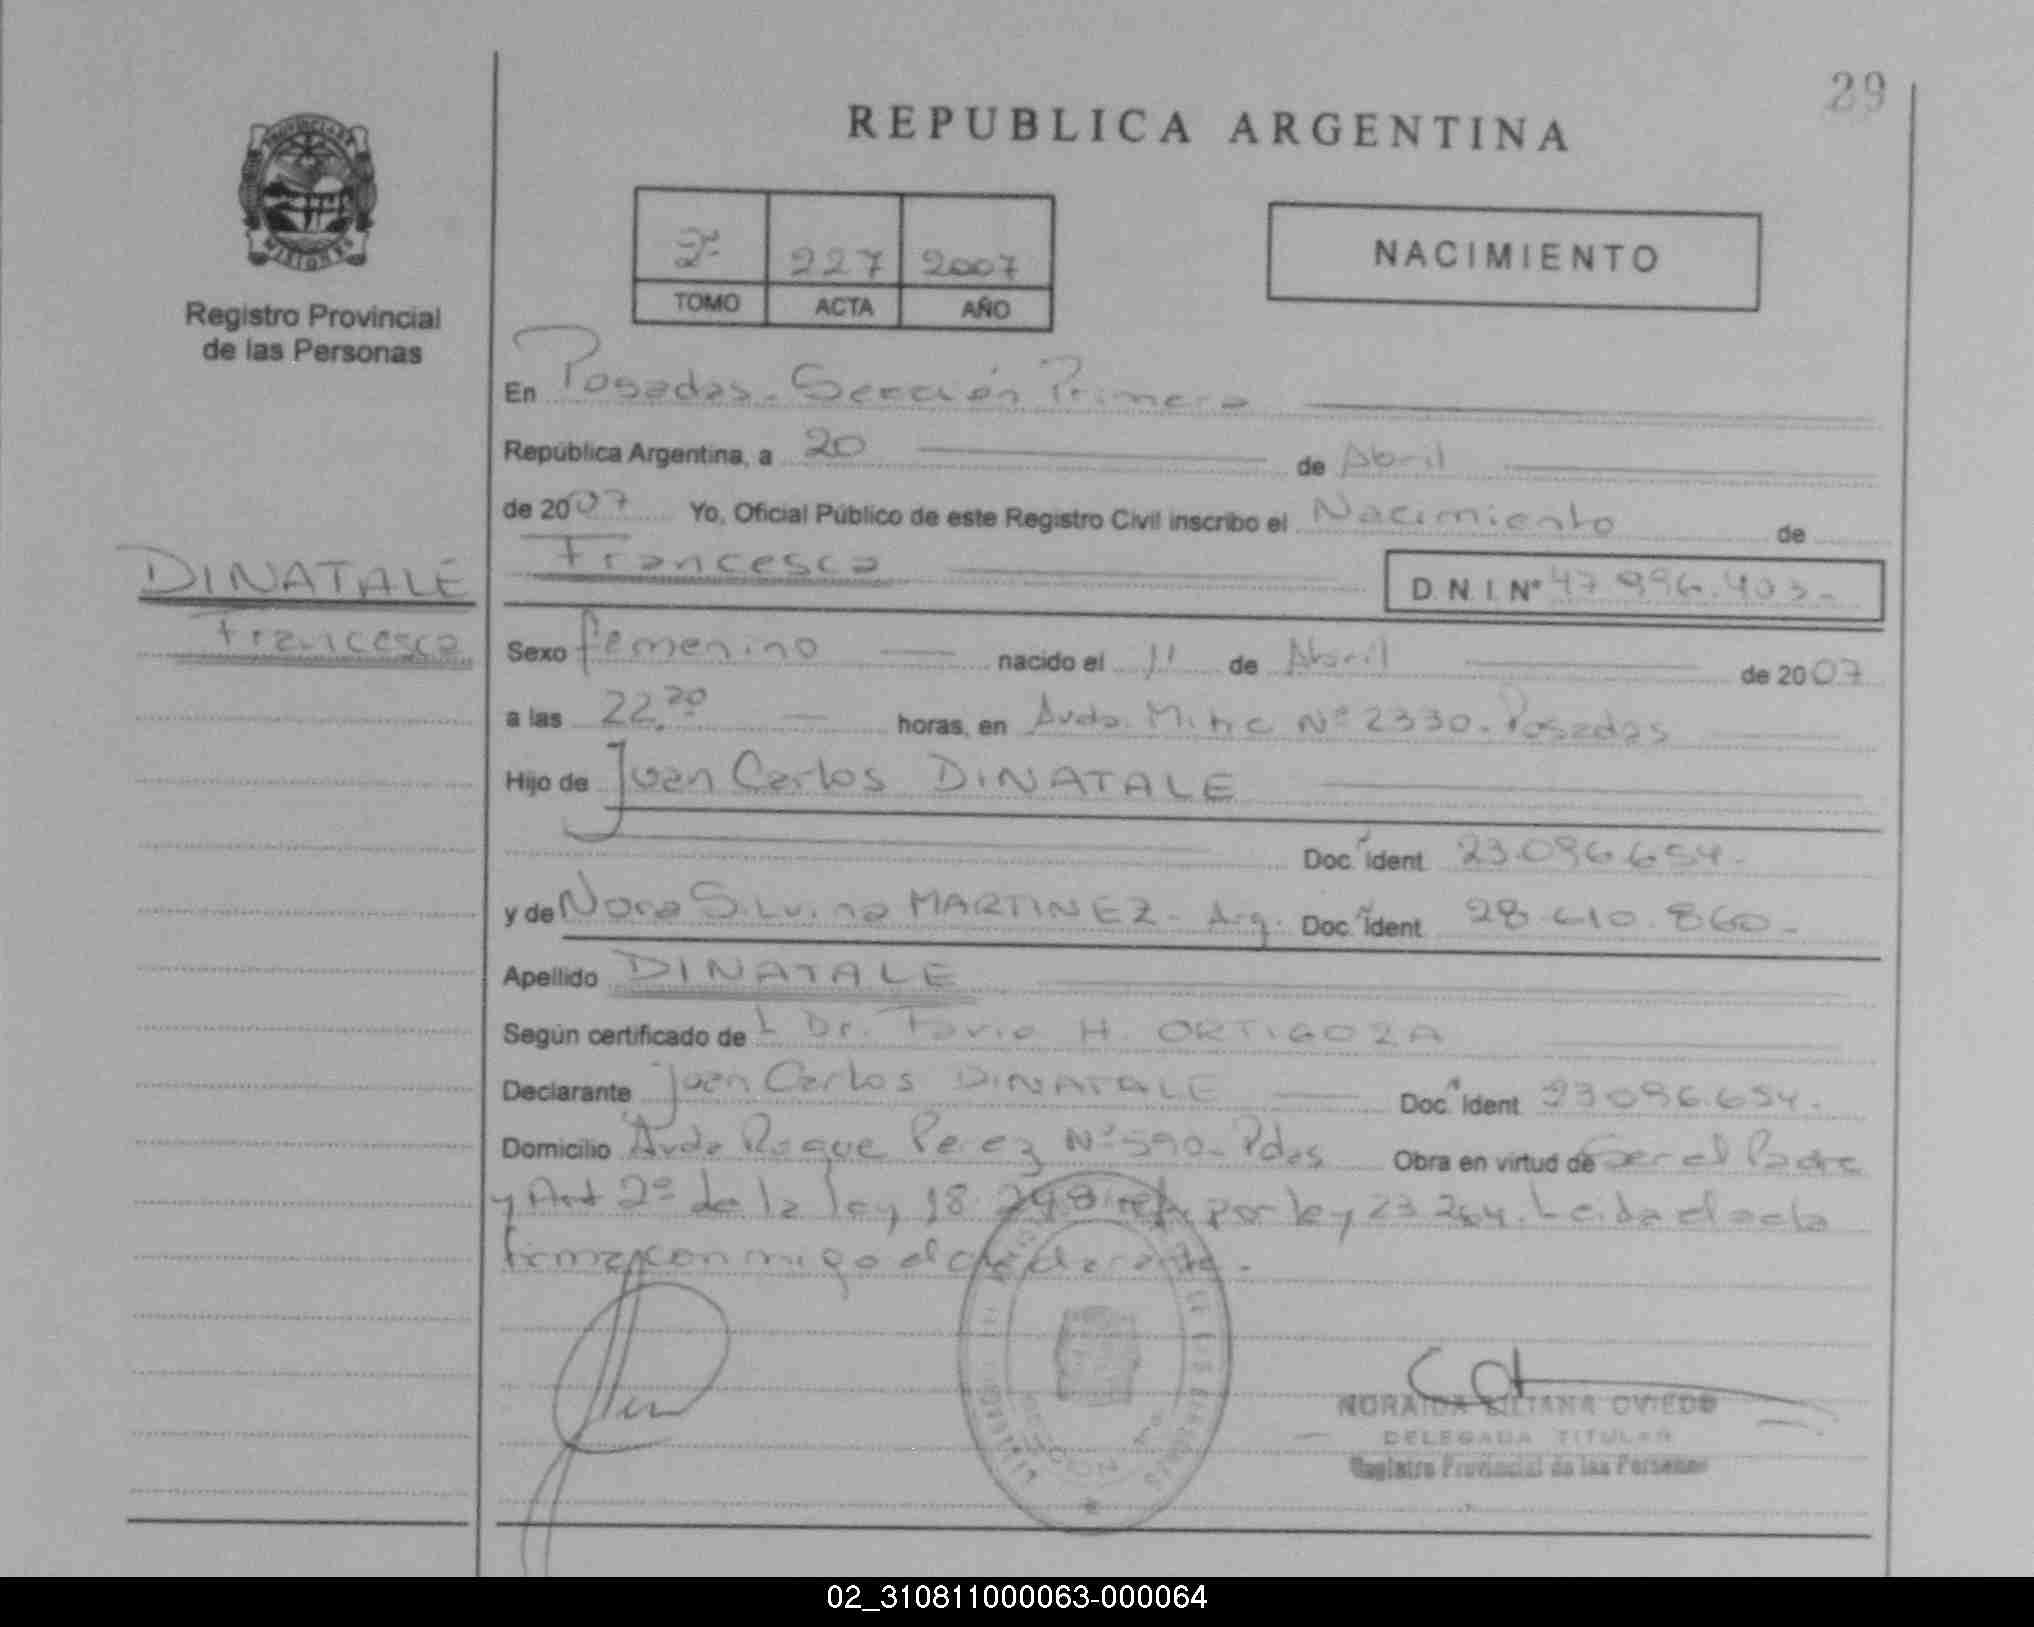 29
REPUBLICA ARGENTINA
PROVINCIA DE
MISIONES
Registro Provincial
de las Personas
2º 227 2007
TOMO ACTA AÑO
NACIMIENTO
En Posadas. Sección Primera
República Argentina, a 20 de Abril
de 2007 Yo, Oficial Público de este Registro Civil inscribo el Nacimiento de
Francesca D.N.I. Nº 47.996.403.-
DINATALE
Francesca
Sexo femenino nacido el 11 de Abril de 2007
a las 22.20 horas, en Avda. Mitre Nº 2330. Posadas
Hijo de Juan Carlos DINATALE
Doc. Ident 23.096.654.
y de Nora Silvina MARTINEZ - Arg. Doc. Ident 28.610.860.-
Apellido DINATALE
Según certificado de L Dr. H. ORTIGOZA
Declarante Juan Carlos DINATALE Doc. Ident 23096.654.
Domicilio Avda Roque Perez Nº 590- Pdas Obra en virtud de Ser el Padre
y Art 2º de la ley 18.248 por ley 23.264. Leida el acta
firma conmigo el declarante.
NORAIDA LILIANA OVIEDO
DELEGADA TITULAR
Registro Provincial de las Personas
02_310811000063-000064